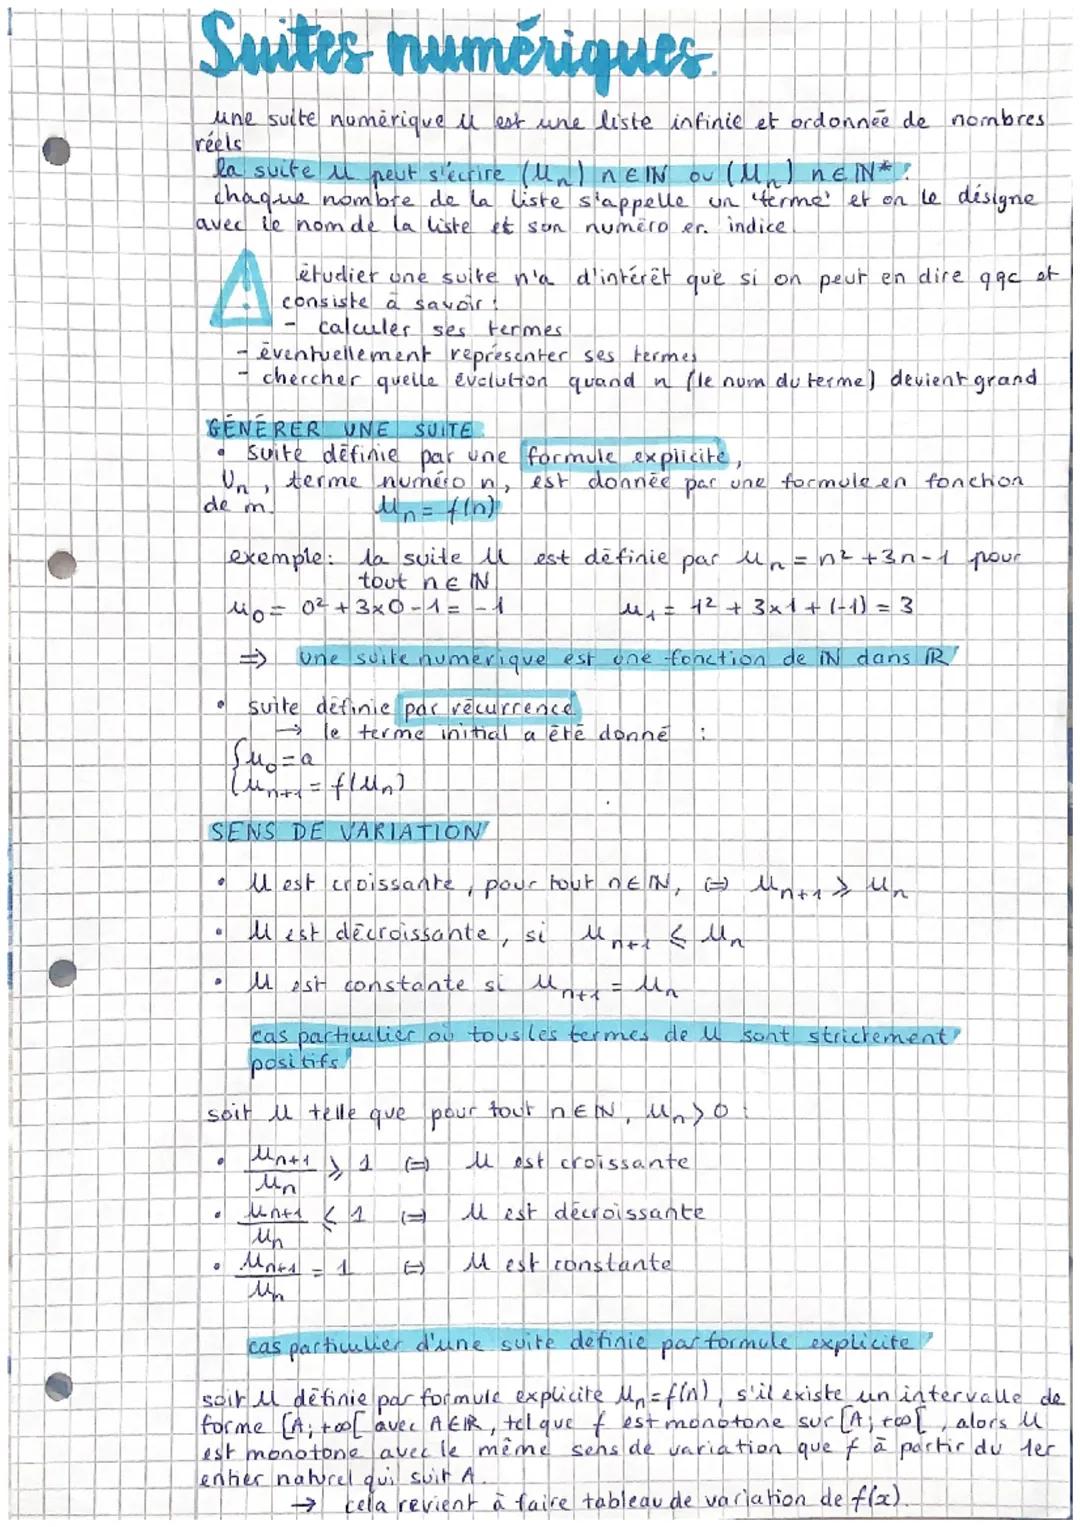 Suites numériques.
une suite numérique u est une liste infinie et ordonnée de nombres
réels
la suite u peut s'écrire (Un) n∈ℕ ou (Un) n∈ℕ*.
chaque nombre de la liste s'appelle un 'terme' et on le désigne
avec le nom de la liste et son numéro en indice.
étudier une suite n'a d'intérêt que si on peut en dire qqc et
consiste à savoir :
- calculer ses termes
- éventuellement représenter ses termes
- chercher quelle évolution quand n (le num du terme) devient grand
GÉNÉRER UNE SUITE
• suite définie par une formule explicite,
Un, terme numéro n, est donnée par une formule en fonction
de n. Un = f(n)
exemple : la suite U est définie par Un = n² + 3n - 1 pour
tout n∈ℕ
u0 = 0² + 3×0 - 1 = -1 u1 = 1² + 3×1 + (-1) = 3
⇒ une suite numérique est une fonction de ℕ dans ℝ
• suite définie par récurrence
→ le terme initial a été donné :
{u0 = a
{un+1 = f(Un)
SENS DE VARIATION
• U est croissante, pour tout n∈ℕ, ⇔ Un+1 ⩾ Un
• U est décroissante, si Un+1 ⩽ Un
• U est constante si Un+1 = Un
cas particulier où tous les termes de U sont strictement
positifs
soit U telle que pour tout n∈ℕ, Un > 0 :
• Un+1/Un ⩾ 1 ⇔ U est croissante
• Un+1/Un ⩽ 1 ⇔ U est décroissante
• Un+1/Un = 1 ⇔ U est constante
cas particulier d'une suite définie par formule explicite
soit U définie par formule explicite Un = f(n), s'il existe un intervalle de
forme [A; +∞[ avec A∈ℝ, tel que f est monotone sur [A; +∞[, alors U
est monotone avec le même sens de variation que f à partir du 1er
entier naturel qui suit A.
→ cela revient à faire tableau de variation de f(x).